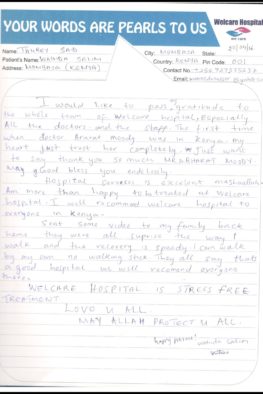 YOUR WORDS ARE PEARLS TO US
Welcare Hospital
Name: SAID
Patient's Name: WAHIDA SALIM
Address: MOMBASA (KENYA)
City: MOMBASA State:
Country: KENYA Pin Code: 001
Contact No.:
Email:
I would like to pass gratitude to
the whole team of Welcare hospital, Especially
All the doctors and the staff. The first time
when doctor moody was in Kenya my
heart just trust her completely. Just want
to say thank you so much MR BHARAT MODY.
May bless you endlessly.
Hospital services is excellent mashaallah
Am more than happy to be treated at Welcare
hospital. I will recommed welcare hospital to
everyone in Kenya.
Sent some video to my family back
home they were all suprise the way I
walk and the recovery is speedy I can walk
by my own no walking stick They all say thats
a good hospital we will recomend everyone
there.
WELCARE HOSPITAL IS STRESS FREE
TREATMENT
LOVE U ALL.
MAY ALLAH PROTECT U ALL.
happy patient wahida salim